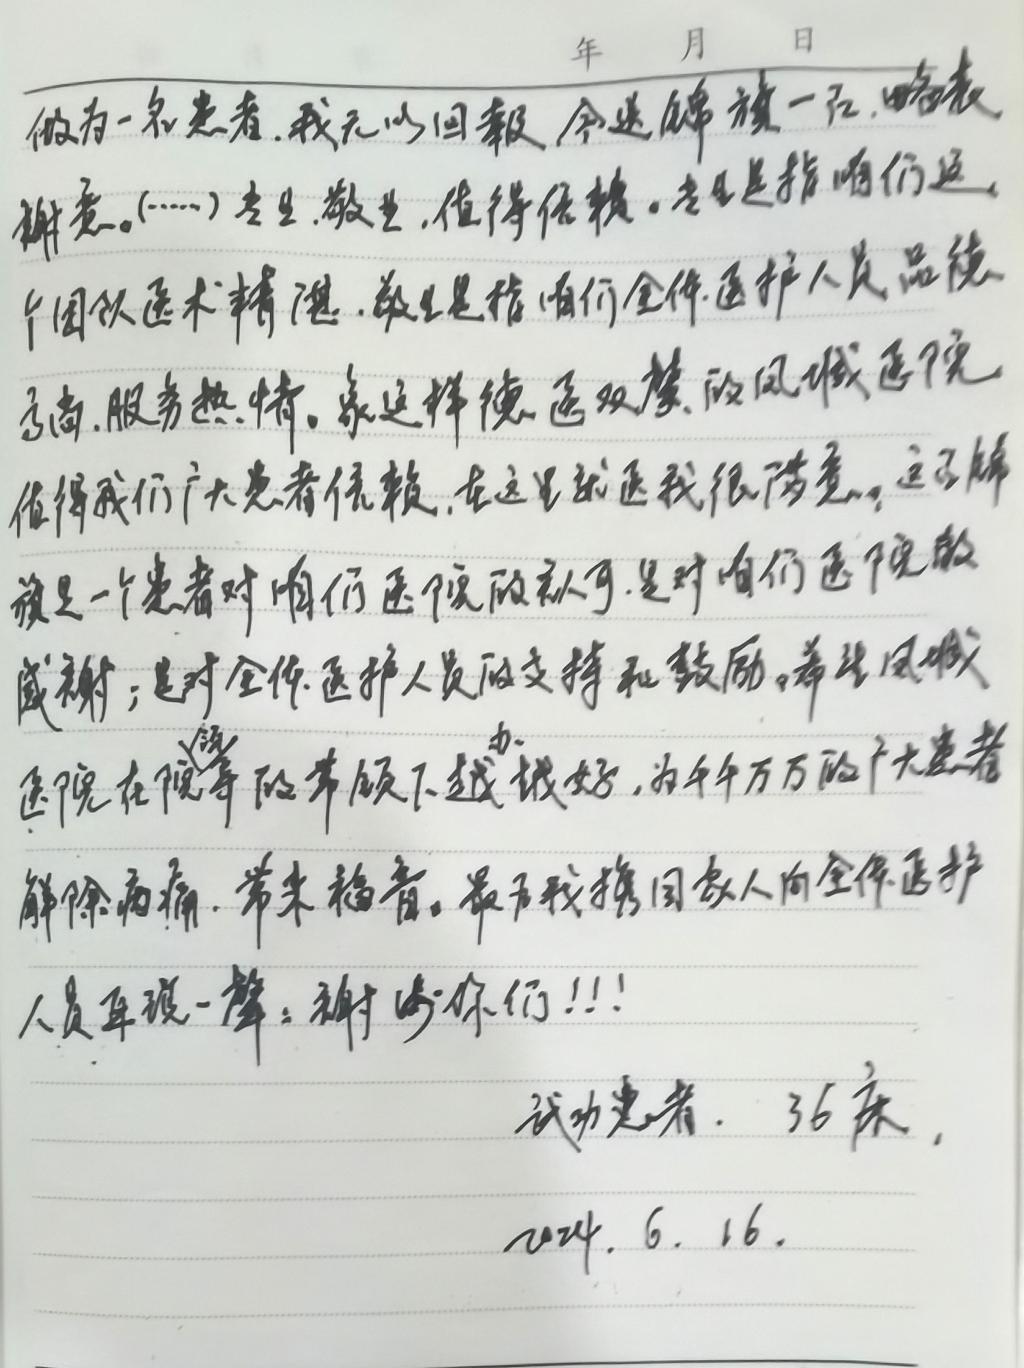 年 月 日
做为一名患者,我无以回报,今送锦旗一面,略表
谢意。(……)专业、敬业,值得信赖。专业是指咱们这
个团队医术精湛,敬业是指咱们全体医护人员品德
高尚、服务热情。象这样德医双馨的凤城医院
值得我们广大患者信赖,在这里就医我很满意。这面锦
旗是一个患者对咱们医院的认可,是对咱们医院的
感谢;是对全体医护人员的支持和鼓励。希望凤城
医院在院领导的带领下越办越好,为千千万万的广大患者
解除病痛,带来福音。最后我携同家人向全体医护
人员再说一声:谢谢你们!!!
武功患者. 36床.
2024. 6. 16.